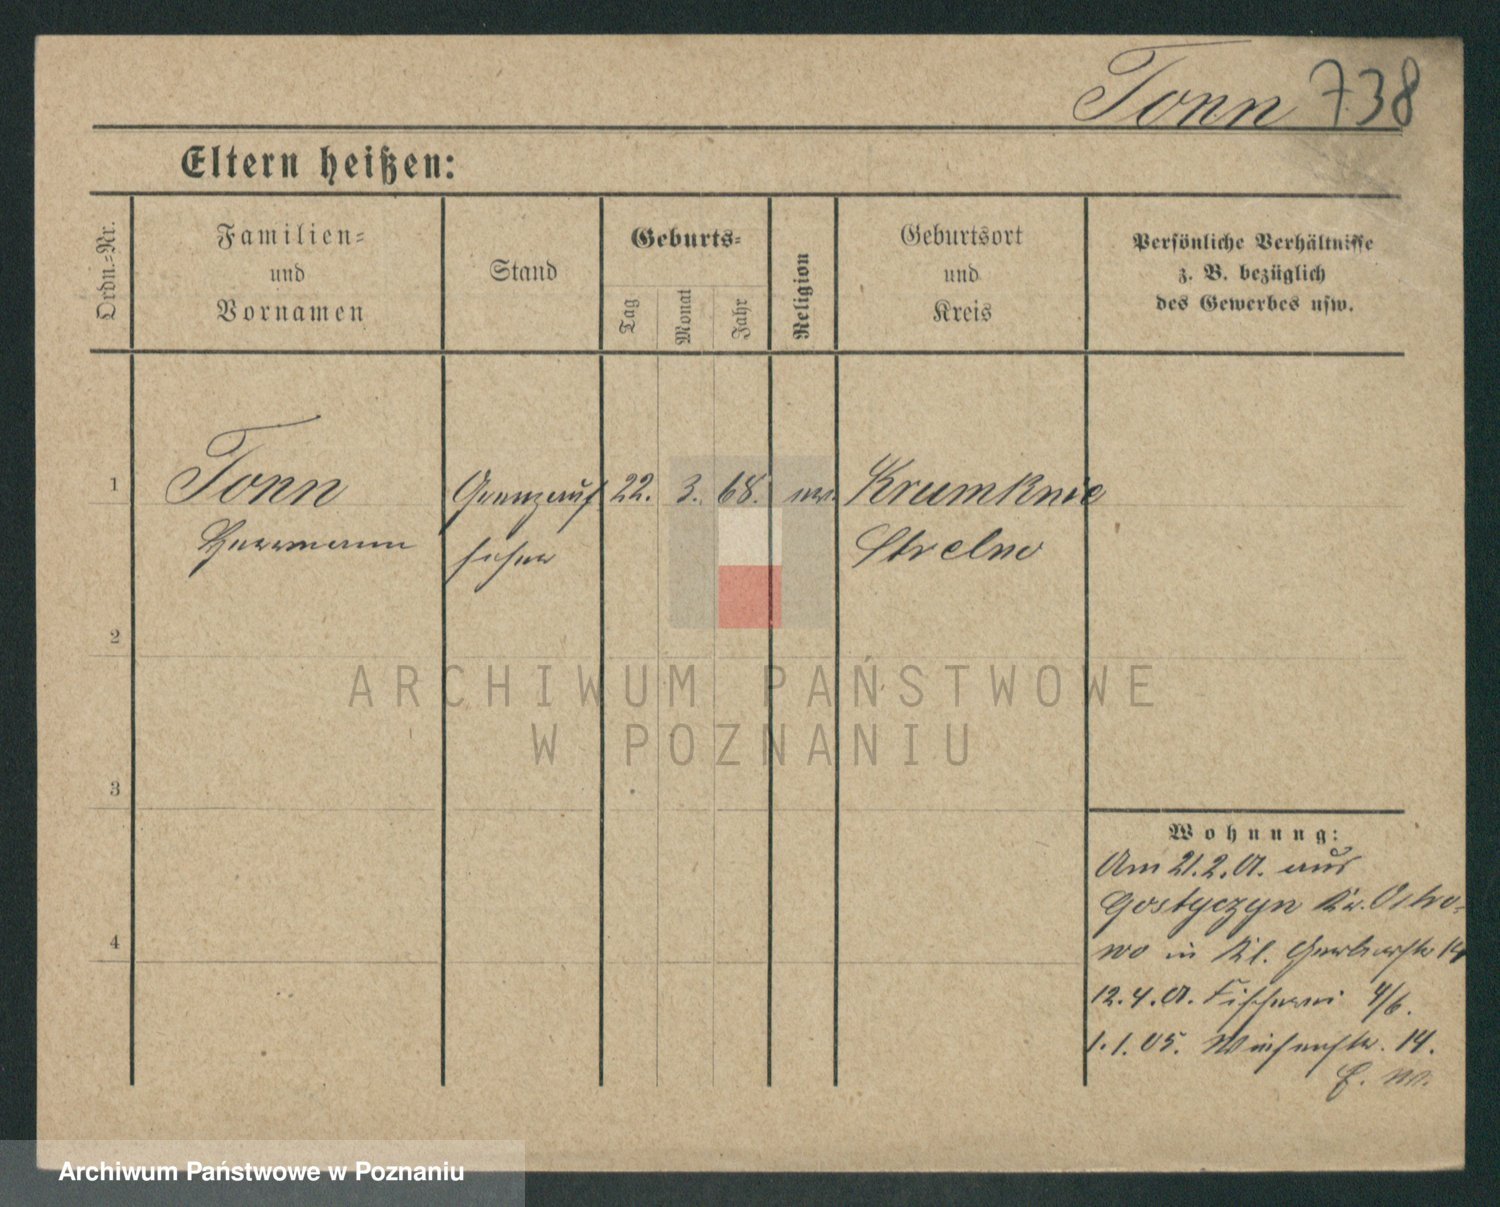 Tonn 738
Eltern heißen:
Ordn.-Nr.
Familien-
und
Vornamen
Stand
Geburts-
Tag
Monat
Jahr
Religion
Geburtsort
und
Kreis
Persönliche Verhältnisse
z. B. bezüglich
des Gewerbes usw.
1 Tonn Grenzauf 22. 3. 68. ev. Krumknie
Herrmann seher Strelno
2
3
4
Wohnung:
Am 21.2.01. aus
Gostyczyn Kr. Ostro-
wo in Kl. Gerberstr 14
12.4.01. Fischerei 4/6.
1.1.05. Wiesenstr. 14.
ARCHIWUM PAŃSTWOWE
W POZNANIU
Archiwum Państwowe w Poznaniu